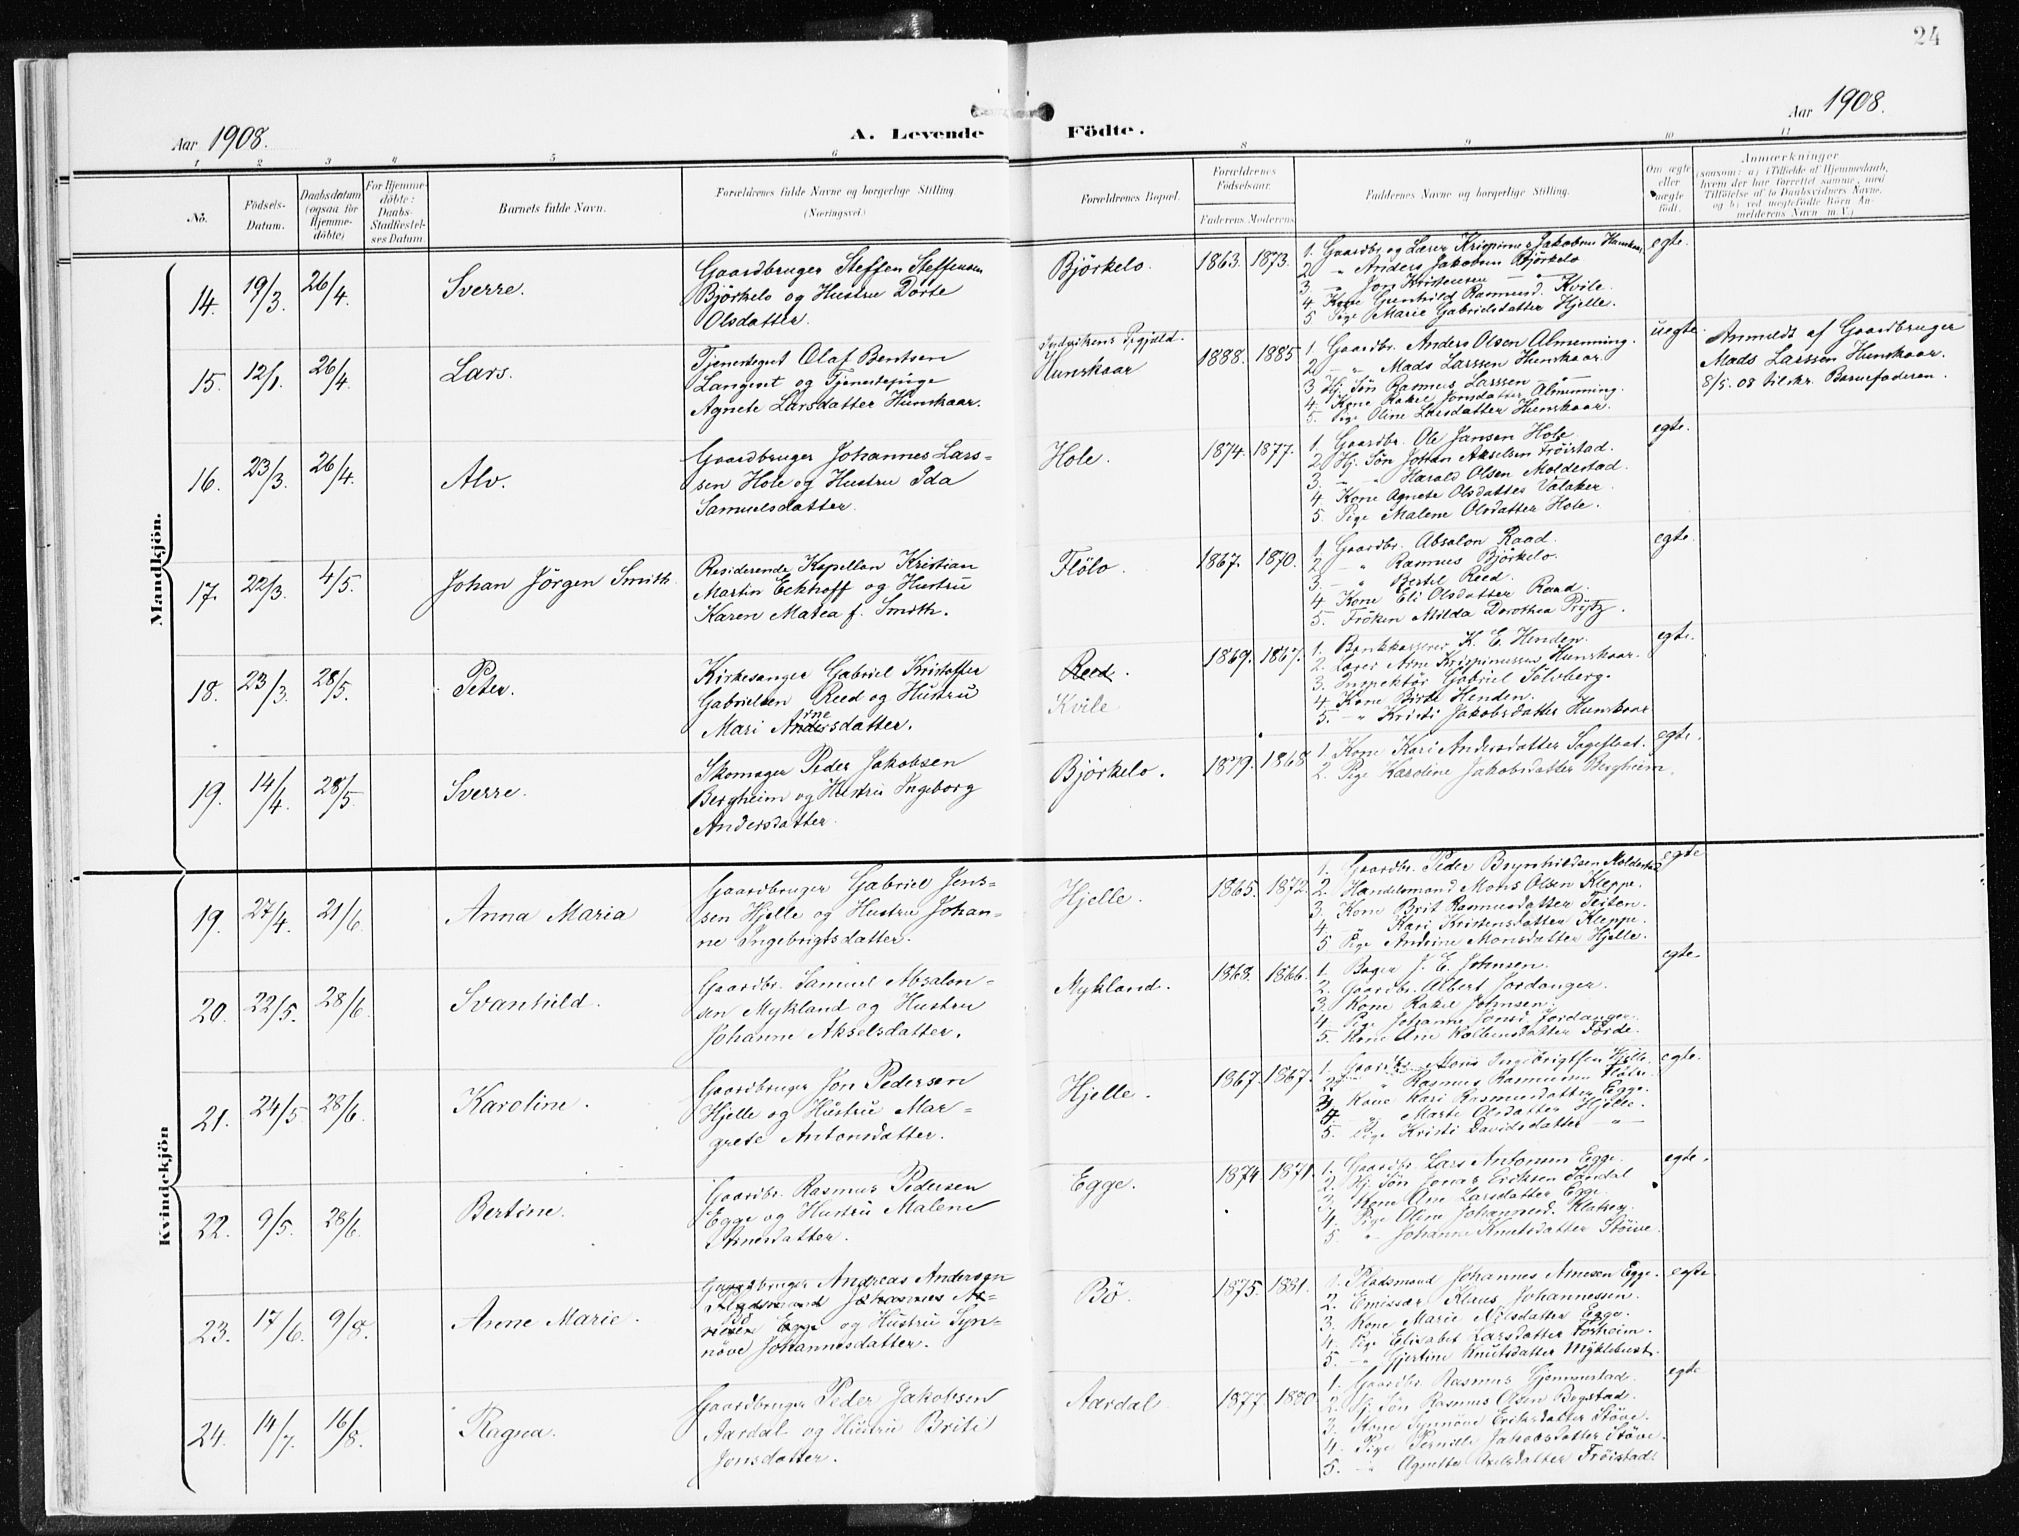 24
Aar 1908.
A. Levende
Födte.
Aar 1908.
1 2 3 4 5 6 8 9 10 11
No.
Födsels-Datum.
Daabsdatum (ogsaa for Hjemme-döbte)
For Hjemme-döbte: Daabs-Stadfæstel-ses Datum
Barnets fulde Navn.
Forældrenes fulde Navne og borgerlige Stilling (Næringsvei)
Forældrenes Bopæl.
Forældrenes Födselsaar.
Faderens Moderens
Faddernes Navne og borgerlige Stilling.
Om ægte eller uægte födt.
Anmærkninger
(saasom: a) i Tilfælde af Hjemmedaab, hvem der har forrettet samme, med Tilföielse af to Daabsvidners Navne, og b) ved uægtefödte Börn Anmelderens Navn m. V.)
Mandkjön.
14. 19/3. 26/4. Sverre.
Gaardbruger Steffen Steffensen
Björkelo og Hustru Dorte
Olsdatter.
Björkelo. 1863. 1873.
1. Gaardbr. og Lærer Krispinus Jakobsen Hunskaar
2 — " Anders Jakobsen Björkelo
3. — " Jon Kristensen — " —
4. Kone Gunhild Rasmusd. Kvile.
5 Pige Marie Gabrielsdatter Hjelle.
egte.
15. 12/1. 26/4. Lars.
Tjenestegut Olaf Bentsen
Langeset og Tjenestepige
Agnete Larsdatter Hunskaar.
Hunskaar 1888. 1885
1. Gaardbr. Anders Olsen Almenning.
2 — " — Mads Larssen Hunskaar.
3 Hj. Sön Rasmus Larssen — " —
4. Kone Rakel Jonsdatter Almenning.
5. Pige Oline Larsdatter Hunskaar.
uegte.
Anmeldt af Gaardbruger
Mads Larssen Hunskaar.
8/5. 08 tilskr. Barnefaderen.
16. 23/3. 26/4. Alv.
Gaardbruger Johannes Lars=
sen Hole og Hustru Ida
Samuelsdatter.
Hole. 1874. 1877.
1. Gaardbr. Ole Jansen Hole
2 Hj. Sön Johan Akselsen Fröistad.
3. — " Harald Olsen Moldestad.
4. Kone Agnete Olsdatter Valaker.
5. Pige Malene Olsdatter Hole.
egte.
17. 22/3. 4/5. Johan Jörgen Smith
Residerende Kapellan Kristian
Martin Eckhoff og Hustru
Karen Matea f. Smith.
Flölo. 1867. 1870.
1. Gaardbr. Absalon Raad.
2 — " Rasmus Björkelo.
3. — " Bertil Reed.
4. Kone Eli Olsdatter Raad.
5. Fröken Milda Dorothea Prytz.
egte.
18. 23/3. 28/5. Peter.
Kirkesanger Gabriel Kristoffer
Gabrielsen Reed og Hustru
Mari Arnesdatter.
Reed.
Kvile
1869. 1867.
1. Bankkasserer K. E. Henden.
2. Lærer Arne Krispinussen Hunskaar.
3. Inspektör Gabriel Sölvberg.
4 Kone Birte Henden.
5. — " Kristi Jakobsdatter Hunskaar
egte.
19. 14/4. 28/5. Sverre.
Skomager Peder Jakobsen
Bergheim og Hustru Ingeborg
Andersdatter.
Björkelo. 1879. 1868
1. Kone Kari Andersdatter Sageflaat.
2. Pige Karoline Jakobsdatter Bergheim.
egte.
Kvindekjön
19. 27/4. 21/6. Anna Maria
Gaardbruger Gabriel Jens=
sen Hjelle og Hustru Johan=
ne Ingebrigtsdatter.
Hjelle. 1865. 1872.
1. Gaardbr. Peder Brynhildsen Moldestad
2. Handelsmand Mons Olsen Kleppe.
3. Kone Brit Rasmusdatter Feiten.
4. " Kari Kristensdatter Kleppe.
5 Pige Andrine Monsdatter Hjelle.
egte
20. 22/5. 28/6. Svanhild.
Gaardbr. Samuel Absalon=
sen Mykland og Hustru
Johanne Akselsdatter.
Mykland. 1868. 1866.
1. Bager J. E. Johnsen.
2. Gaardbr. Albert Jordanger.
3 Kone Rakel Johnsen.
4. Pige Johanne Jonsd. Jordanger.
5. Kone Ane Kolbensdatter Förde.
egte.
21. 24/5. 28/6. Karoline.
Gaardbruger Jon Pedersen
Hjelle og Hustru Mar=
grete Antonsdatter.
Hjelle. 1867. 1867.
1. Gaardbr. Ingebrigtsen Hjelle.
2 " Rasmus Rasmussen
3 Kone Kari Rasmusdatter Egge.
4. " Marte Olsdatter Hjelle.
5. Pige Kristi Davidsdatter — " —
egte.
22. 9/5. 28/6. Bertine.
Gaardbr. Rasmus Pedersen
Egge og Hustru Malene
Arnesdatter.
Egge. 1874. 1871.
1. Gaardbr. Lars Antonsen Egge.
2. Hj. Sön Jonas Eriksen Sandal
3. Kone Ane Larsdatter Egge.
4. Pige Oline Johannesd.
5. " Johanne Knutsdatter Stöive.
egte.
23. 17/6. 9/8. Anne Marie.
Gaardbruger Andreas Andersen
Pladsmand Johannes Ar=
nesen Egge Bö og Hustru Syn=
növe Johannesdatter.
Bö. 1875. 1881.
1. Pladsmand Johannes Arnesen Egge.
2. Emissær Klaus Johannessen.
3. Kone Marie Nilsdatter Egge.
4. Pige Elisabet Larsdatter Forheim.
5. — " Gjertine Knutsdatter Myklebust.
egte.
24. 14/7. 16/8. Ragna.
Gaardbruger Peder Jakobsen
Aardal og Hustru Brite
Jonsdatter.
Aardal 1877. 1880.
1. Gaardbr. Rasmus Gjemmestad.
2. Hj. Sön Rasmus Olsen Bogstad.
3. Kone Synnöve Eriksdatter Stöve.
4. Pige Pernille Jakobsdatter Stöve.
5. — " Agnette Axelsdatter Fröistad.
egte